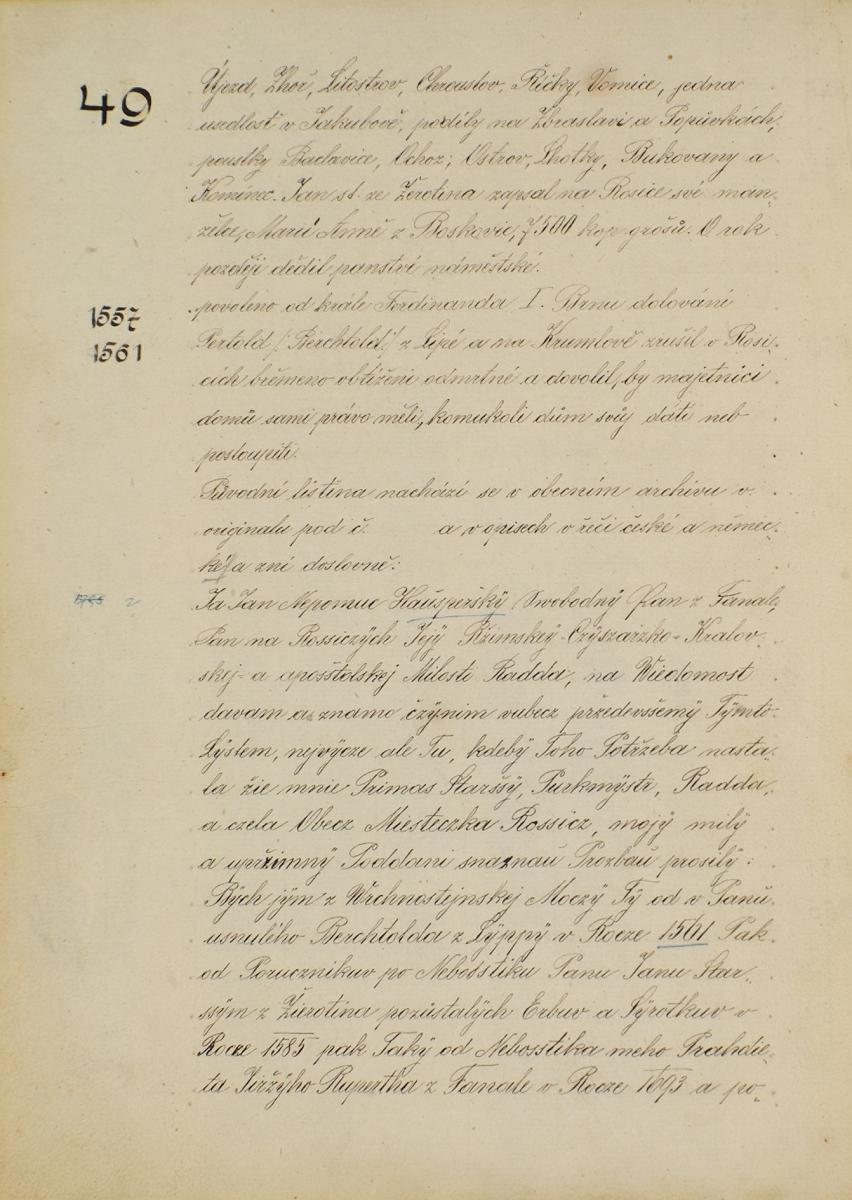 49
Újezd, Zhoř, Litostrov, Chroustov, Říčky, Domice, jedna
usedlost v Jakubově, podíly na Zbraslavi a Popůvkách,
poustky Baclavice, Ochoz, Ostrov, Lhotky, Bukovany a
Komínec. Jan st. ze Žerotína zapsal na Rosice své man„
želce, Marii Anně z Boskovic, 7500 kop grošů. O rok
později dědil panství náměstské.
1557 povoleno od krále Ferdinanda I. Brnu dolování
1561 Pertold /: Berchtold :/ z Lipé a na Krumlově zrušil v Rosi„
cích břemeno obtížení odmrtné a dovolil, by majetníci
domů sami právo měli, komukoli dům svůj dáti neb
postoupiti.
Původní listina nachází se v obecním archivu v
originalu pod č. a v opisech v řeči české a němec„
ké, a zní doslovně:
Ja Jan Nepomuc Haüsperský Swobodný Pan z Fanale,
Pan na Rossiczých Jejý Ržimskeý-Czýszařzko-Kralov„
skej- a aposstolskej Milosti Radda, na Wiedomost
davam a znamo čzýnim vubecz přzedevssemý Týmto
Lýstem, nejvýcze ale Tu, kdebý Toho Potřzeba nasta„
la žie mnie Primas Starssý, Purkmýstr, Radda,
a czela Obecz Miesteczka Rossicz, mojý milý
a upřzimný Poddani snaznau Prozbau prosilý:
Bých jým z Wrchnostejnskej Moczý Tý od v Panu
usnulého Berchtolda z Lýppý v Rocze 1561 Pak
od Porucznikuv po Nebosstiku Panu Janu Star„
ssým z Žierotina pozůstalých Erbuv a Sýrotkuv v
Rocze 1585 pak Taký od Nebosstika meho Prahdie„
ta Jiržýho Rupertha z Fanale v Rocze 1693 a po„